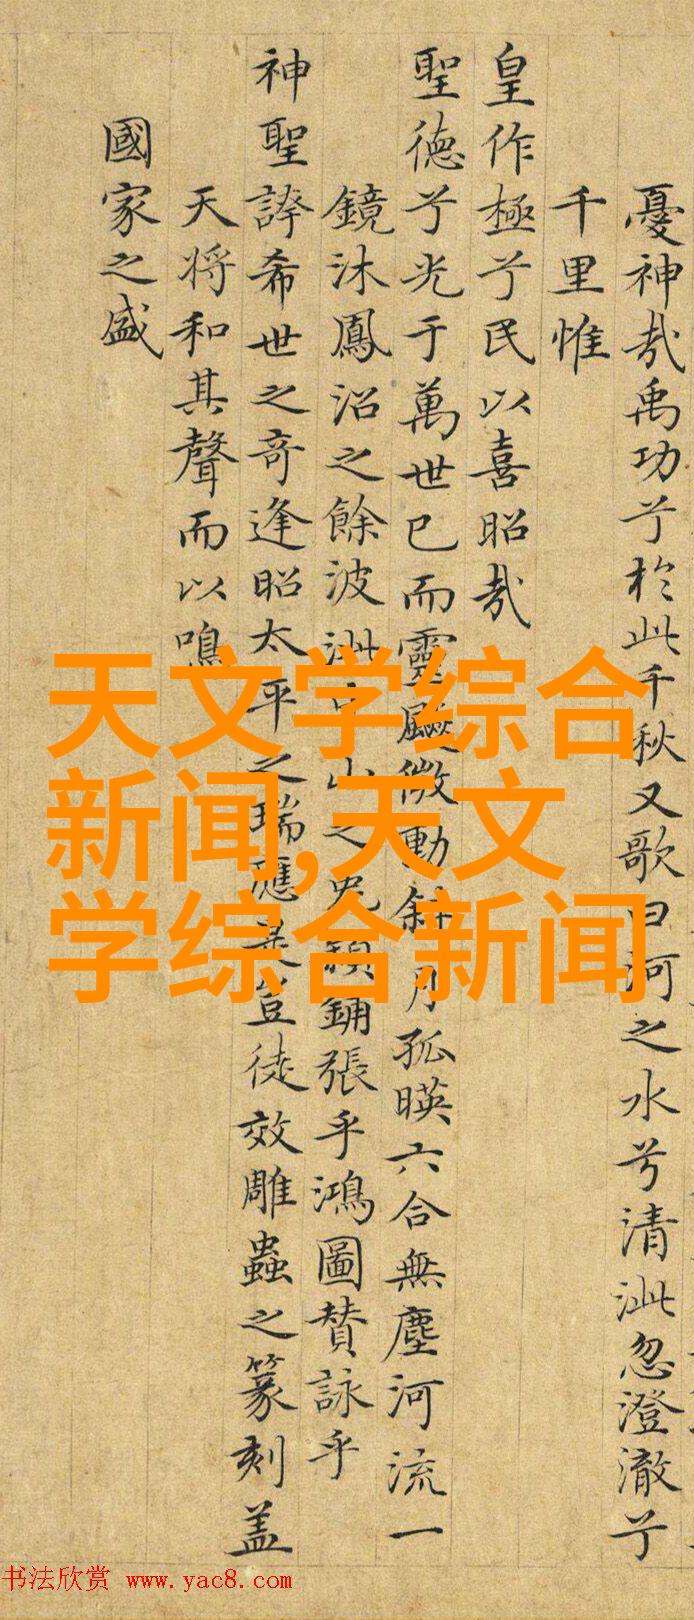 憂神哉禹功兮於此千秋又歌曰河之水兮清泚忽澄澈兮
千里惟
皇作極兮民以喜昭哉
聖德兮光于萬世已而靈飇微動斜月孤暎六合無塵河流一
鏡沐鳳沼之餘波泚之兔穎鋪張乎鴻圖贊詠乎
神聖誇希世之奇逢昭太平之瑞應是豈徒效雕蟲之篆刻盖
天將和其聲而以鳴
國家之盛
天文学综合
新闻,天文
学综合新闻
书法欣赏 www.yac8.com